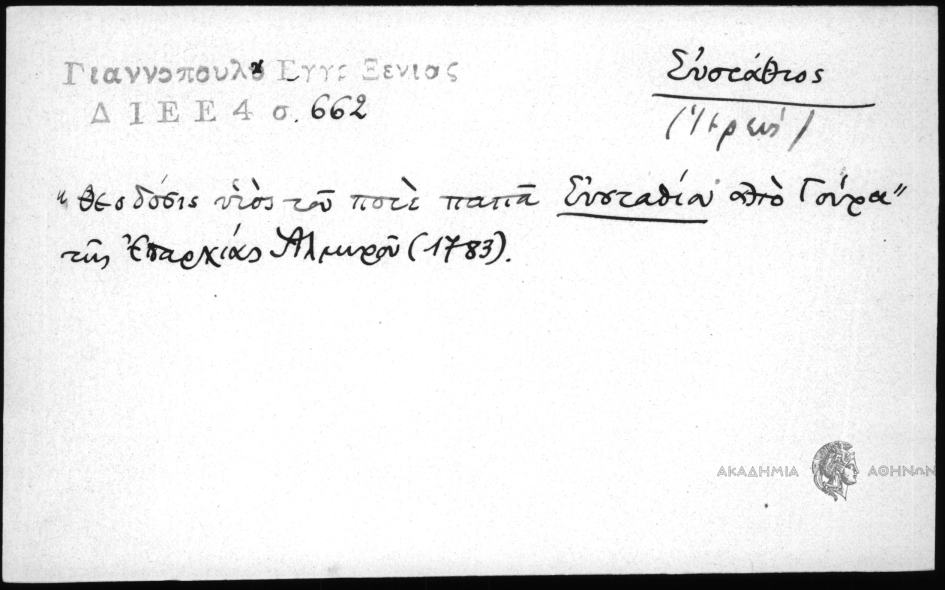 Γιαννοπουλου Εγγρ Ξενιας
Δ Ι Ε Ε 4 σ. 662
Εὐστάθιος
(Ἱερεύς)
"Θεοδόσις υἱὸς τοῦ ποτὲ παπᾶ Εὐσταθίου ἀπὸ Γούρα"
τῆς Ἐπαρχίας Ἁλμυροῦ (1783).
ΑΚΑΔΗΜΙΑ ΑΘΗΝΩΝ